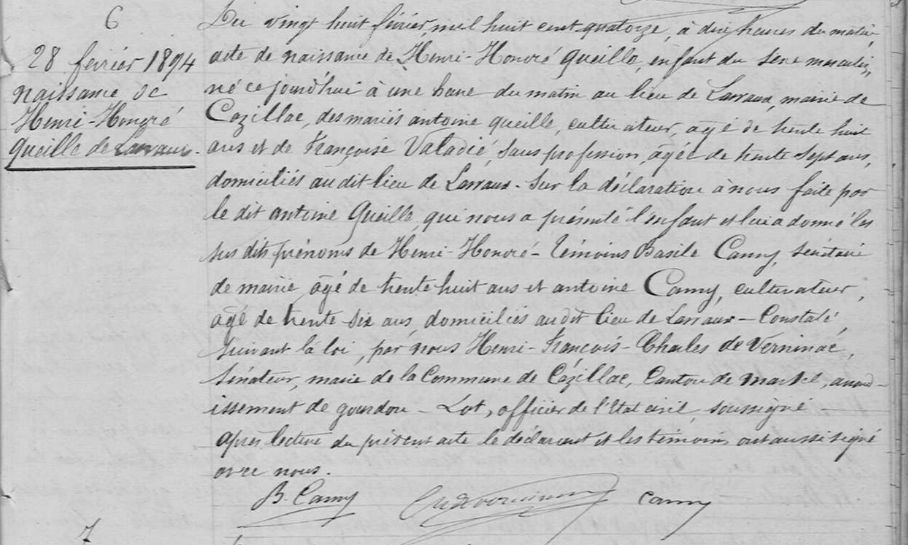 6
28 février 1894
naissance de
Henri-Honoré
Queille de Larraux.
Du vingt huit février mil huit cent quatorze, à dix heures du matin
acte de naissance de Henri-Honoré Queille, enfant du sexe masculin,
né ce jourd'hui à une heure du matin au lieu de Larraux, mairie de
Cazillac, des mariés antoine queille, cultivateur, agé de trente huit
ans et de Françoise Valadié, sans profession, âgée de trente sept ans,
domiciliés au dit lieu de Larraux - Sur la déclaration à nous faite par
le dit antoine Queille, qui nous a présenté l'enfant et lui a donné les
sus dits prénoms de Henri-Honoré - témoins Basile Camy, secrétaire
de mairie, âgé de trente huit ans et antoine Camy, cultivateur,
âgé de trente six ans, domiciliés au dit lieu de Larraux - Constaté
suivant la loi, par nous Henri-François-Charles de Verninac,
Sénateur, maire de la Commune de Cazillac, Canton de martel, arrond-
issement de gourdon - Lot, officier de l'Etat civil, soussigné
après lecture du présent acte le déclarant et les témoins ont aussi signé
avec nous.
B. Camy
Ch de Verninac
Camy
7